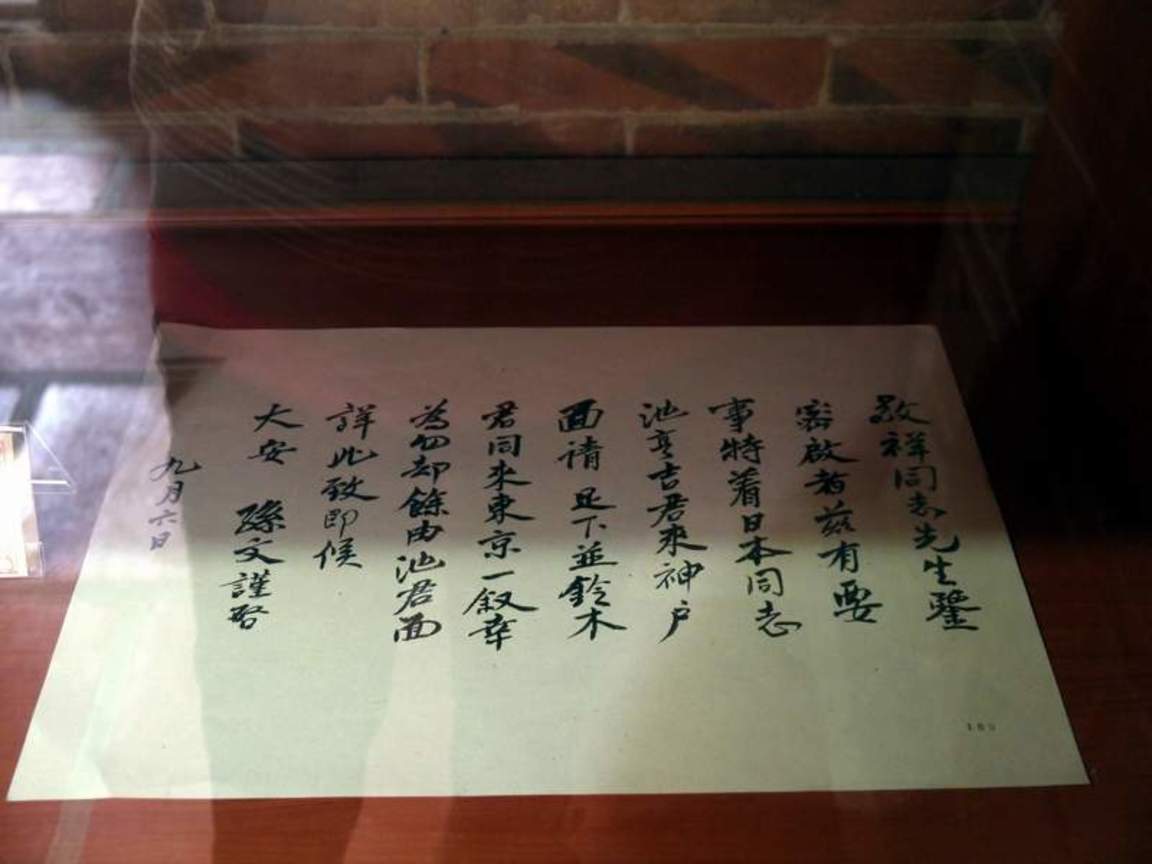 敬祥同志先生鑒
密啟者茲有要
事特着日本同志
池亨吉君來神户
面请足下並鈴木
君同來東京一叙幸
為勿却餘由池君面
詳此致即候
大安 孫文謹啓
九月六日